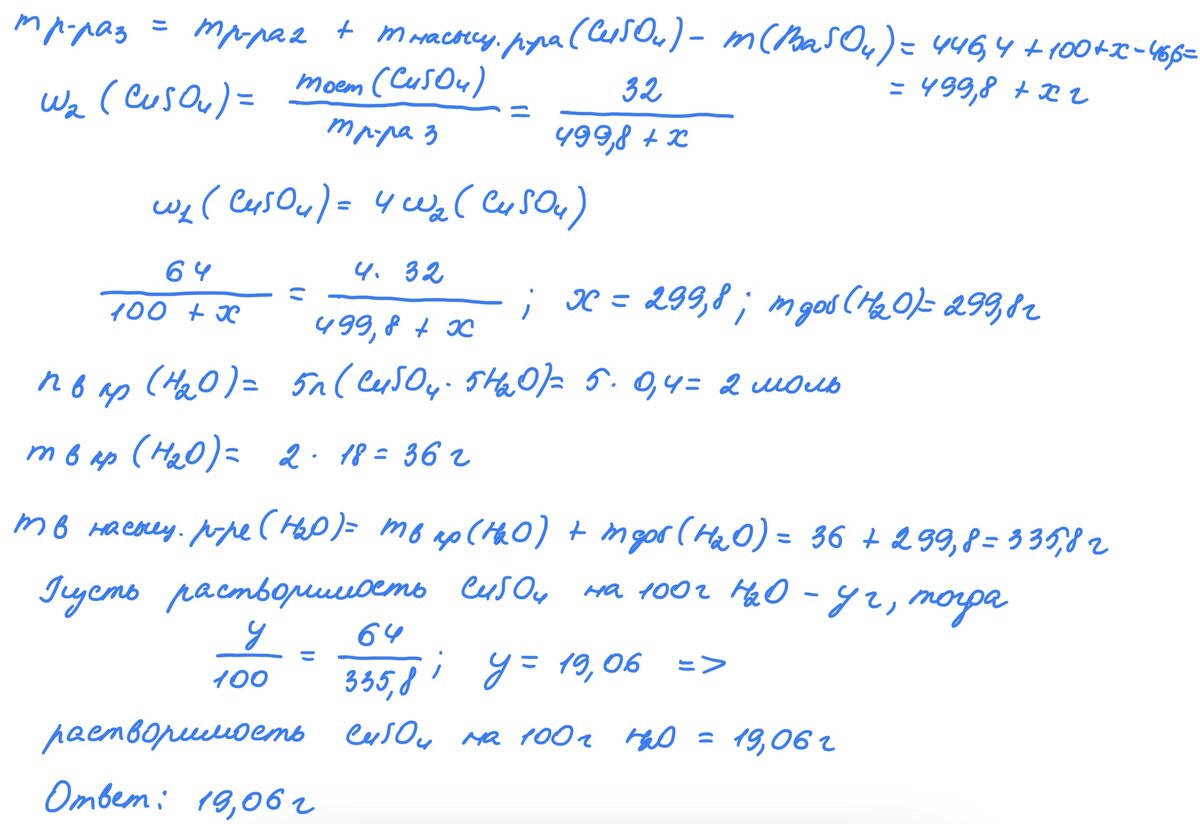 m р-ра3 = m р-ра2 + m насыщ. р-ра (CuSO₄) - m(BaSO₄) = 446,4 + 100 + x - 46,6 =
= 499,8 + x г
ω₂ (CuSO₄) = mост (CuSO₄) / m р-ра 3 = 32 / 499,8 + x
ω₁ (CuSO₄) = 4 ω₂ (CuSO₄)
64 / 100 + x = 4 · 32 / 499,8 + x ; x = 299,8 ; m доб (H₂O) = 299,8 г
n в кр (H₂O) = 5n (CuSO₄ · 5H₂O) = 5 · 0,4 = 2 моль
m в кр (H₂O) = 2 · 18 = 36 г
m в насыщ. р-ре (H₂O) = m в кр (H₂O) + m доб (H₂O) = 36 + 299,8 = 335,8 г
Пусть растворимость CuSO₄ на 100 г H₂O - y г, тогда
y / 100 = 64 / 335,8 ; y = 19,06 =>
растворимость CuSO₄ на 100 г H₂O = 19,06 г
Ответ: 19,06 г